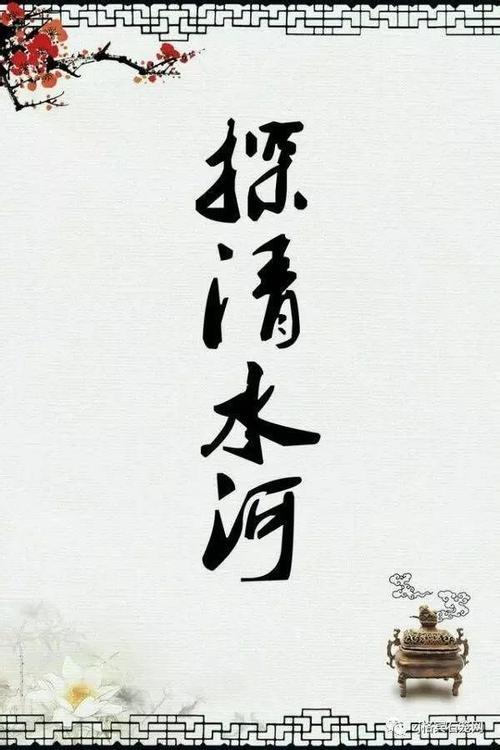 探清水河